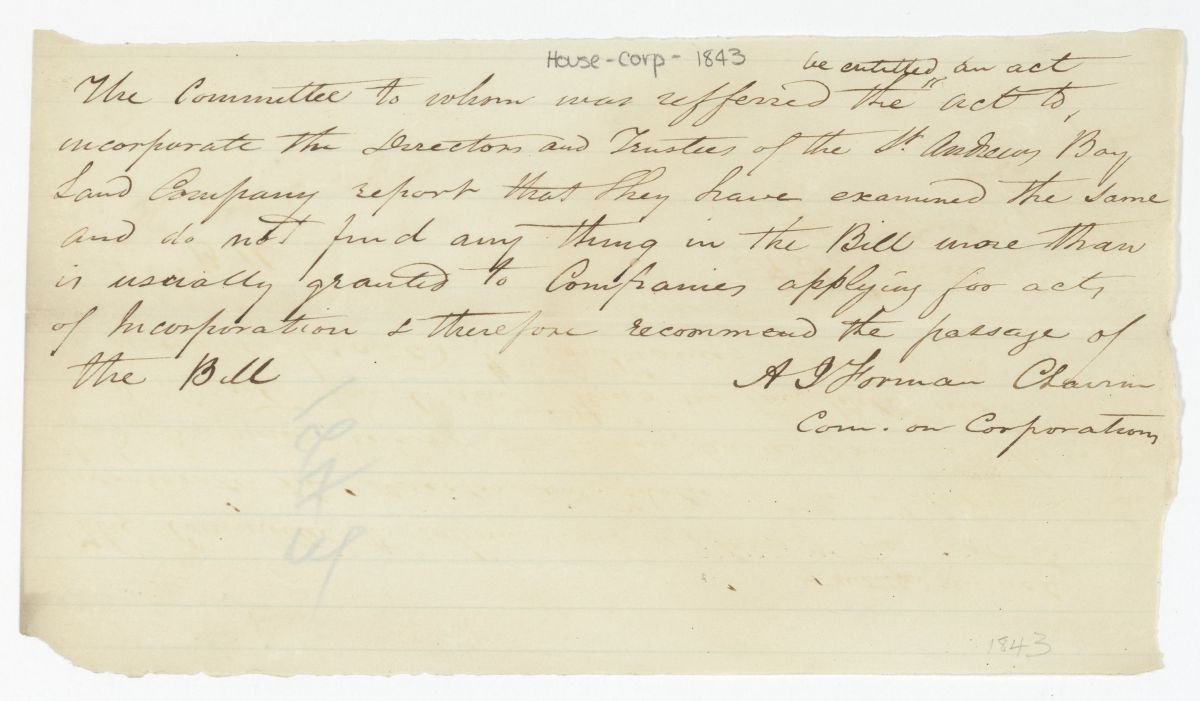 House - Corp - 1843
be entitled an act
The Committee to whom was refferred the " act to,
incorporate the Directors and Trustees of the St Andrews Bay
Land Company report that they have examined the same
and do not find any thing in the Bill more than
is usually granted to Companies applying for acts
of Incorporation & therefore recommend the passage of
the Bill
A J Forman Chairm
Com. on Corporations
1843